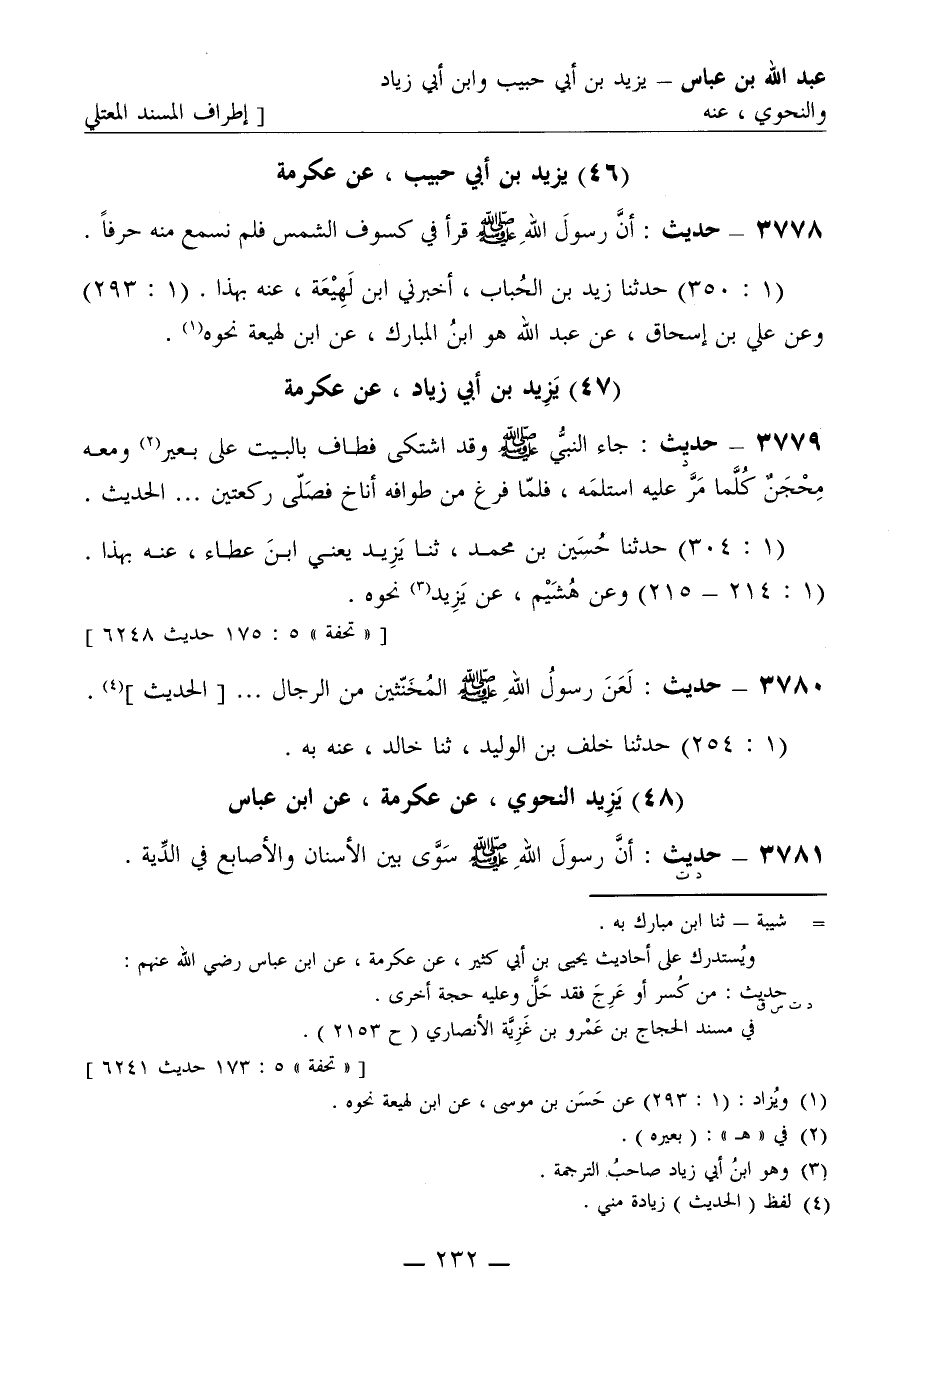 عبد الله بن عباس – يزيد بن أبي حبيب وابن أبي زياد
والنحوي ، عنه [ إطراف المسند المعتلي
(٤٦) يزيد بن أبي حبيب ، عن عكرمة
٣٧٧٨ – حديث : أنَّ رسولَ اللهِ ﷺ قرأ في كسوف الشمس فلم نسمع منه حرفاً .
(١ : ٣٥٠) حدثنا زيد بن الحُباب ، أخبرني ابن لَهِيْعَة ، عنه بهذا . (١ : ٢٩٣)
وعن علي بن إسحاق ، عن عبد الله هو ابنُ المبارك ، عن ابن لهيعة نحوه(١) .
(٤٧) يَزِيد بن أبي زياد ، عن عكرمة
٣٧٧٩ – حديث : جاء النبيُّ ﷺ وقد اشتكى فطاف بالبيت على بعير(٢) ومعه
د
مِحْجَنٌ كُلَّما مَرَّ عليه استلمَه ، فلمّا فرغ من طوافه أناخ فصَلّى ركعتين ... الحديث .
(١ : ٣٠٤) حدثنا حُسَين بن محمد ، ثنا يَزِيد يعني ابنَ عطاء ، عنه بهذا .
(١ : ٢١٤ – ٢١٥) وعن هُشَيْم ، عن يَزِيد(٣) نحوه .
[ « تحفة » ٥ : ١٧٥ حديث ٦٢٤٨ ]
٣٧٨٠ – حديث : لَعَنَ رسولُ اللهِ ﷺ المُخَنّثين من الرجال ... [ الحديث ](٤) .
(١ : ٢٥٤) حدثنا خلف بن الوليد ، ثنا خالد ، عنه به .
(٤٨) يَزِيد النحوي ، عن عكرمة ، عن ابن عباس
٣٧٨١ – حديث : أنَّ رسولَ اللهِ ﷺ سَوَّى بين الأسنان والأصابع في الدِّية .
د ت
= شيبة – ثنا ابن مبارك به .
ويُستدرك على أحاديث يحيى بن أبي كثير ، عن عكرمة ، عن ابن عباس رضي الله عنهم :
حديث : من كُسر أو عَرِجَ فقد حَلَّ وعليه حجة أخرى .
د ت س ق
في مسند الحجاج بن عَمْرو بن غَزِيَّة الأنصاري ( ح ٢١٥٣ ) .
[ « تحفة » ٥ : ١٧٣ حديث ٦٢٤١ ]
(١) ويُزاد : (١ : ٢٩٣) عن حَسَن بن موسى ، عن ابن لهيعة نحوه .
(٢) في « هـ » : ( بعيره ) .
(٣) وهو ابنُ أبي زياد صاحبُ الترجمة .
(٤) لفظ ( الحديث ) زيادة مني .
– ٢٣٢ –